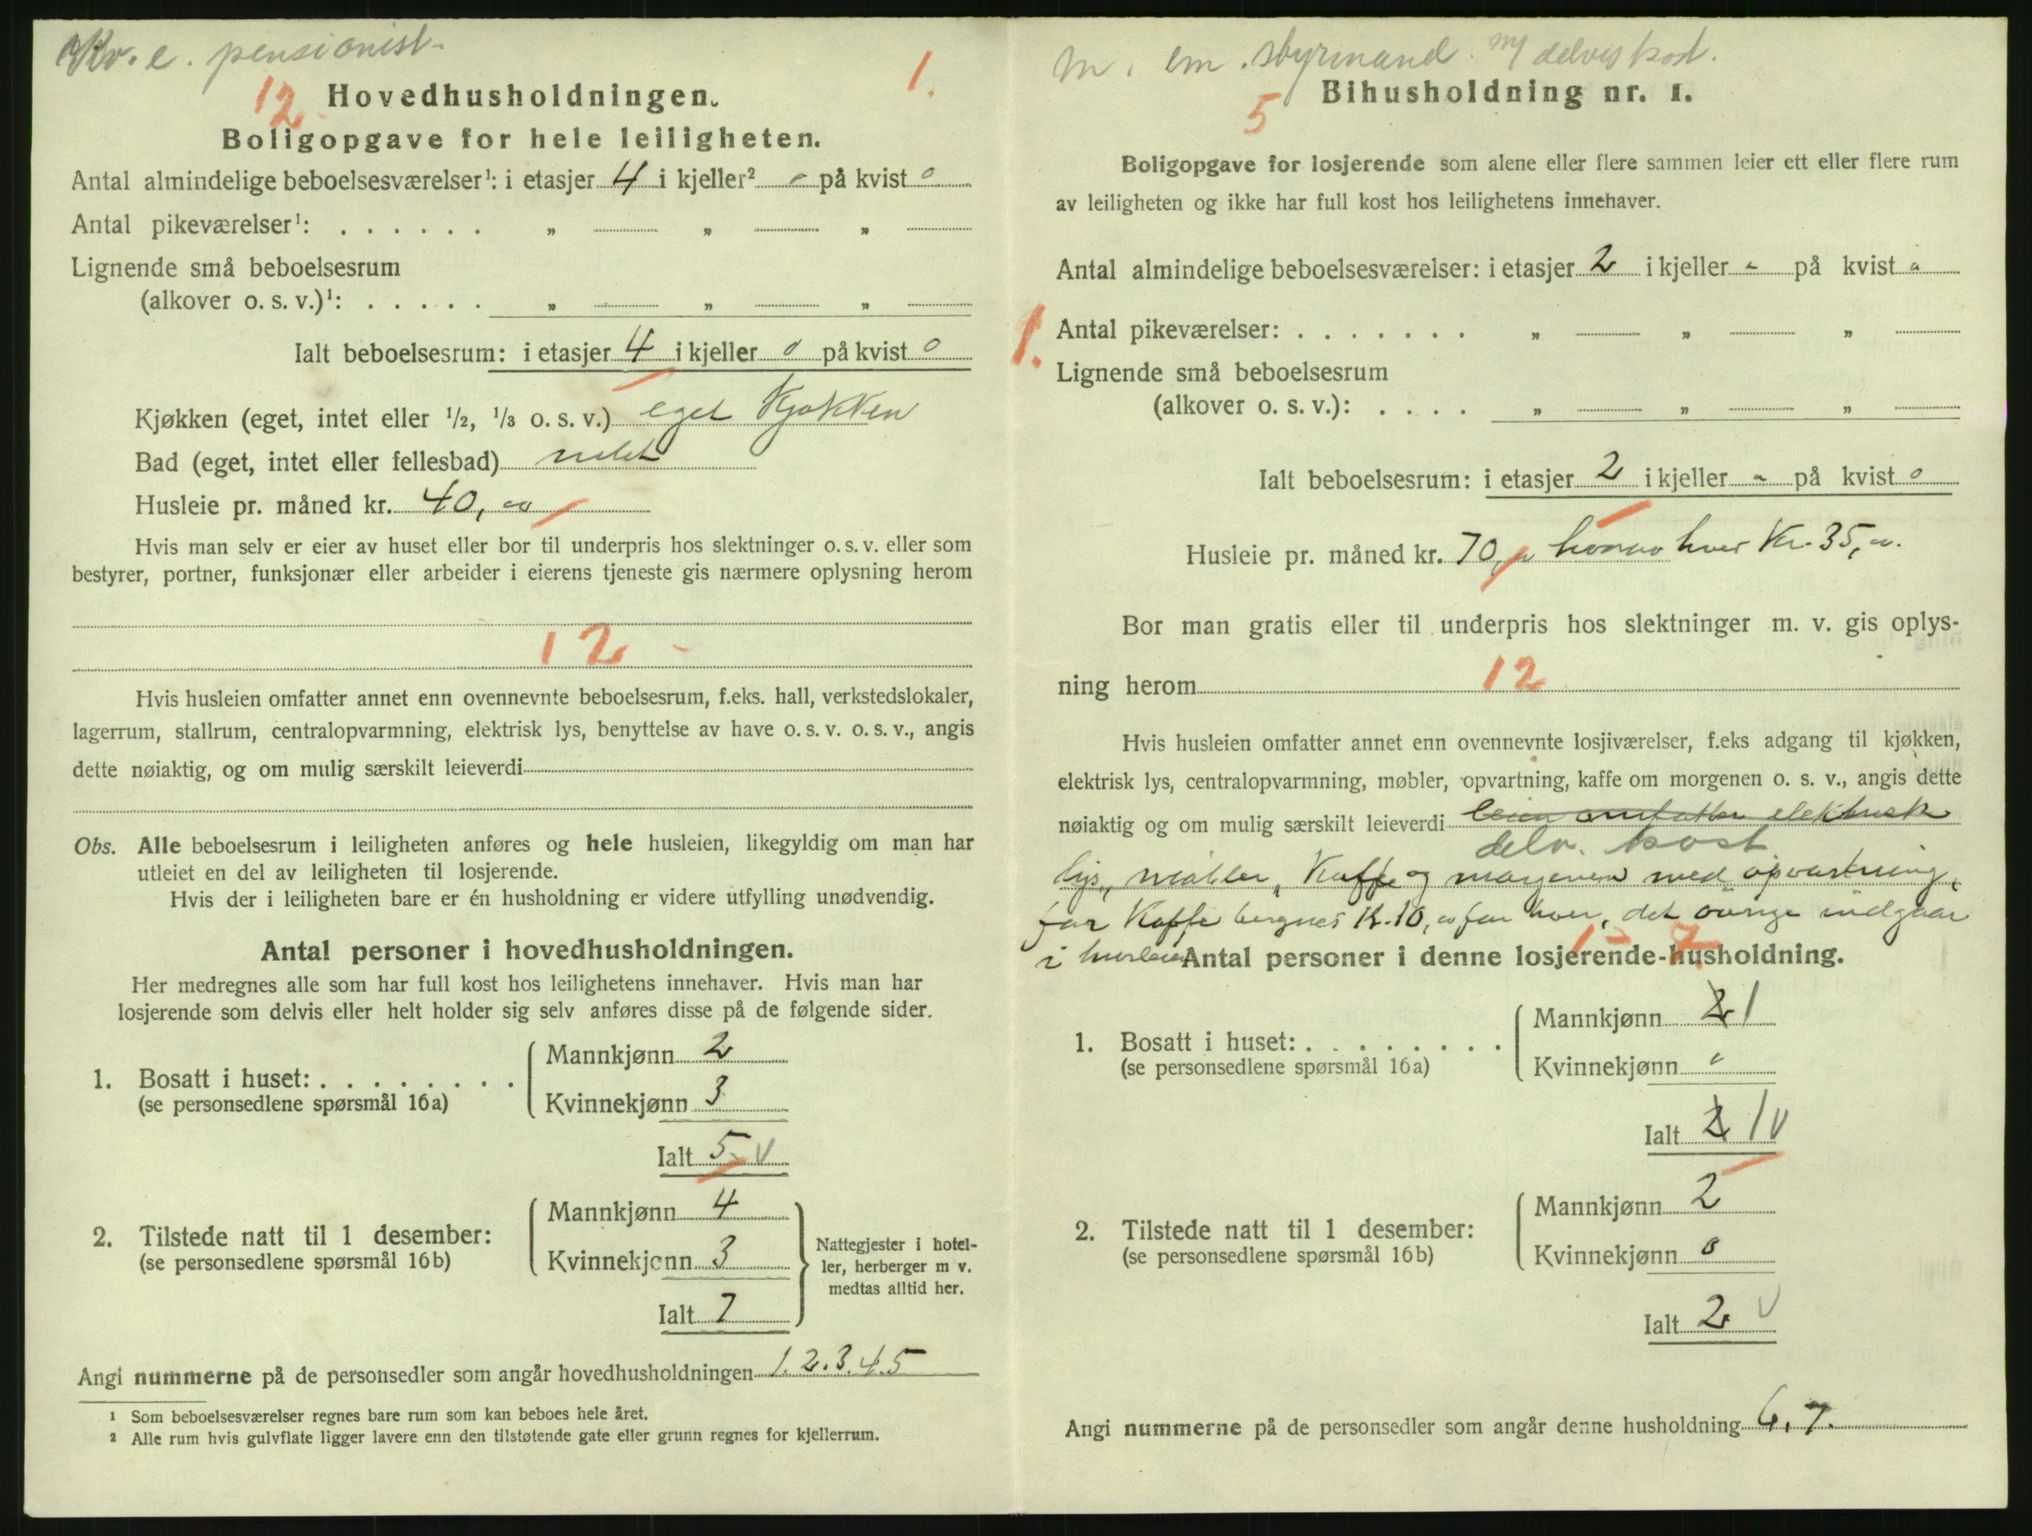 Kv. e. pensionist.
12 1.
Hovedhusholdningen.
Boligopgave for hele leiligheten.
Antal almindelige beboelsesværelser¹: i etasjer 4 i kjeller² o på kvist o
Antal pikeværelser¹: . . . . . . „ „ „
Lignende små beboelsesrum
(alkover o. s. v.)¹: . . . . . „ „ „
Ialt beboelsesrum: i etasjer 4 i kjeller o på kvist o
Kjøkken (eget, intet eller 1/2, 1/3 o. s. v.) eget Kjøkken
Bad (eget, intet eller fellesbad) intet
Husleie pr. måned kr. 40,00
Hvis man selv er eier av huset eller bor til underpris hos slektninger o. s. v. eller som
bestyrer, portner, funksjonær eller arbeider i eierens tjeneste gis nærmere oplysning herom
12
Hvis husleien omfatter annet enn ovennevnte beboelsesrum, f.eks. hall, verkstedslokaler,
lagerrum, stallrum, centralopvarmning, elektrisk lys, benyttelse av have o. s. v. o. s. v., angis
dette nøiaktig, og om mulig særskilt leieverdi
Obs. Alle beboelsesrum i leiligheten anføres og hele husleien, likegyldig om man har
utleiet en del av leiligheten til losjerende.
Hvis der i leiligheten bare er én husholdning er videre utfylling unødvendig.
Antal personer i hovedhusholdningen.
Her medregnes alle som har full kost hos leilighetens innehaver. Hvis man har
losjerende som delvis eller helt holder sig selv anføres disse på de følgende sider.
1. Bosatt i huset: . . . . . . . .
(se personsedlene spørsmål 16a)
Mannkjønn 2
Kvinnekjønn 3
Ialt 5 v
2. Tilstede natt til 1 desember:
(se personsedlene spørsmål 16b)
Mannkjønn 4
Kvinnekjønn 3
Ialt 7
Nattegjester i hotel-
ler, herberger m v.
medtas alltid her.
Angi nummerne på de personsedler som angår hovedhusholdningen 1.2.3.4.5
¹ Som beboelsesværelser regnes bare rum som kan beboes hele året.
² Alle rum hvis gulvflate ligger lavere enn den tilstøtende gate eller grunn regnes for kjellerrum.
m. em. styrmand. m/ delvis kost.
5
Bihusholdning nr. 1.
Boligopgave for losjerende som alene eller flere sammen leier ett eller flere rum
av leiligheten og ikke har full kost hos leilighetens innehaver.
Antal almindelige beboelsesværelser: i etasjer 2 i kjeller - på kvist o
1.
Antal pikeværelser: . . . . . . . „ „ „
Lignende små beboelsesrum
(alkover o. s. v.): . . . . „ „ „
Ialt beboelsesrum: i etasjer 2 i kjeller - på kvist o
Husleie pr. måned kr. 70, hvorav hver Kr. 35,
Bor man gratis eller til underpris hos slektninger m. v. gis oplys-
ning herom 12
Hvis husleien omfatter annet enn ovennevnte losjiværelser, f.eks adgang til kjøkken,
elektrisk lys, centralopvarmning, møbler, opvartning, kaffe om morgenen o. s. v., angis dette
nøiaktig og om mulig særskilt leieverdi leien omfatter elektrisk
delv. kost
lys, møbler, Kaffe og morgenen med opvartning,
for Kaffe beregnes K. 10, for hver, det øvrige indgaar
i husleien
12
Antal personer i denne losjerende-husholdning.
1. Bosatt i huset: . . . . . . . . .
(se personsedlene spørsmål 16a)
Mannkjønn 2 1
Kvinnekjønn o
Ialt 2 1 v
2. Tilstede natt til 1 desember:
(se personsedlene spørsmål 16b)
Mannkjønn 2
Kvinnekjønn o
Ialt 2 v
Angi nummerne på de personsedler som angår denne husholdning 6, 7.